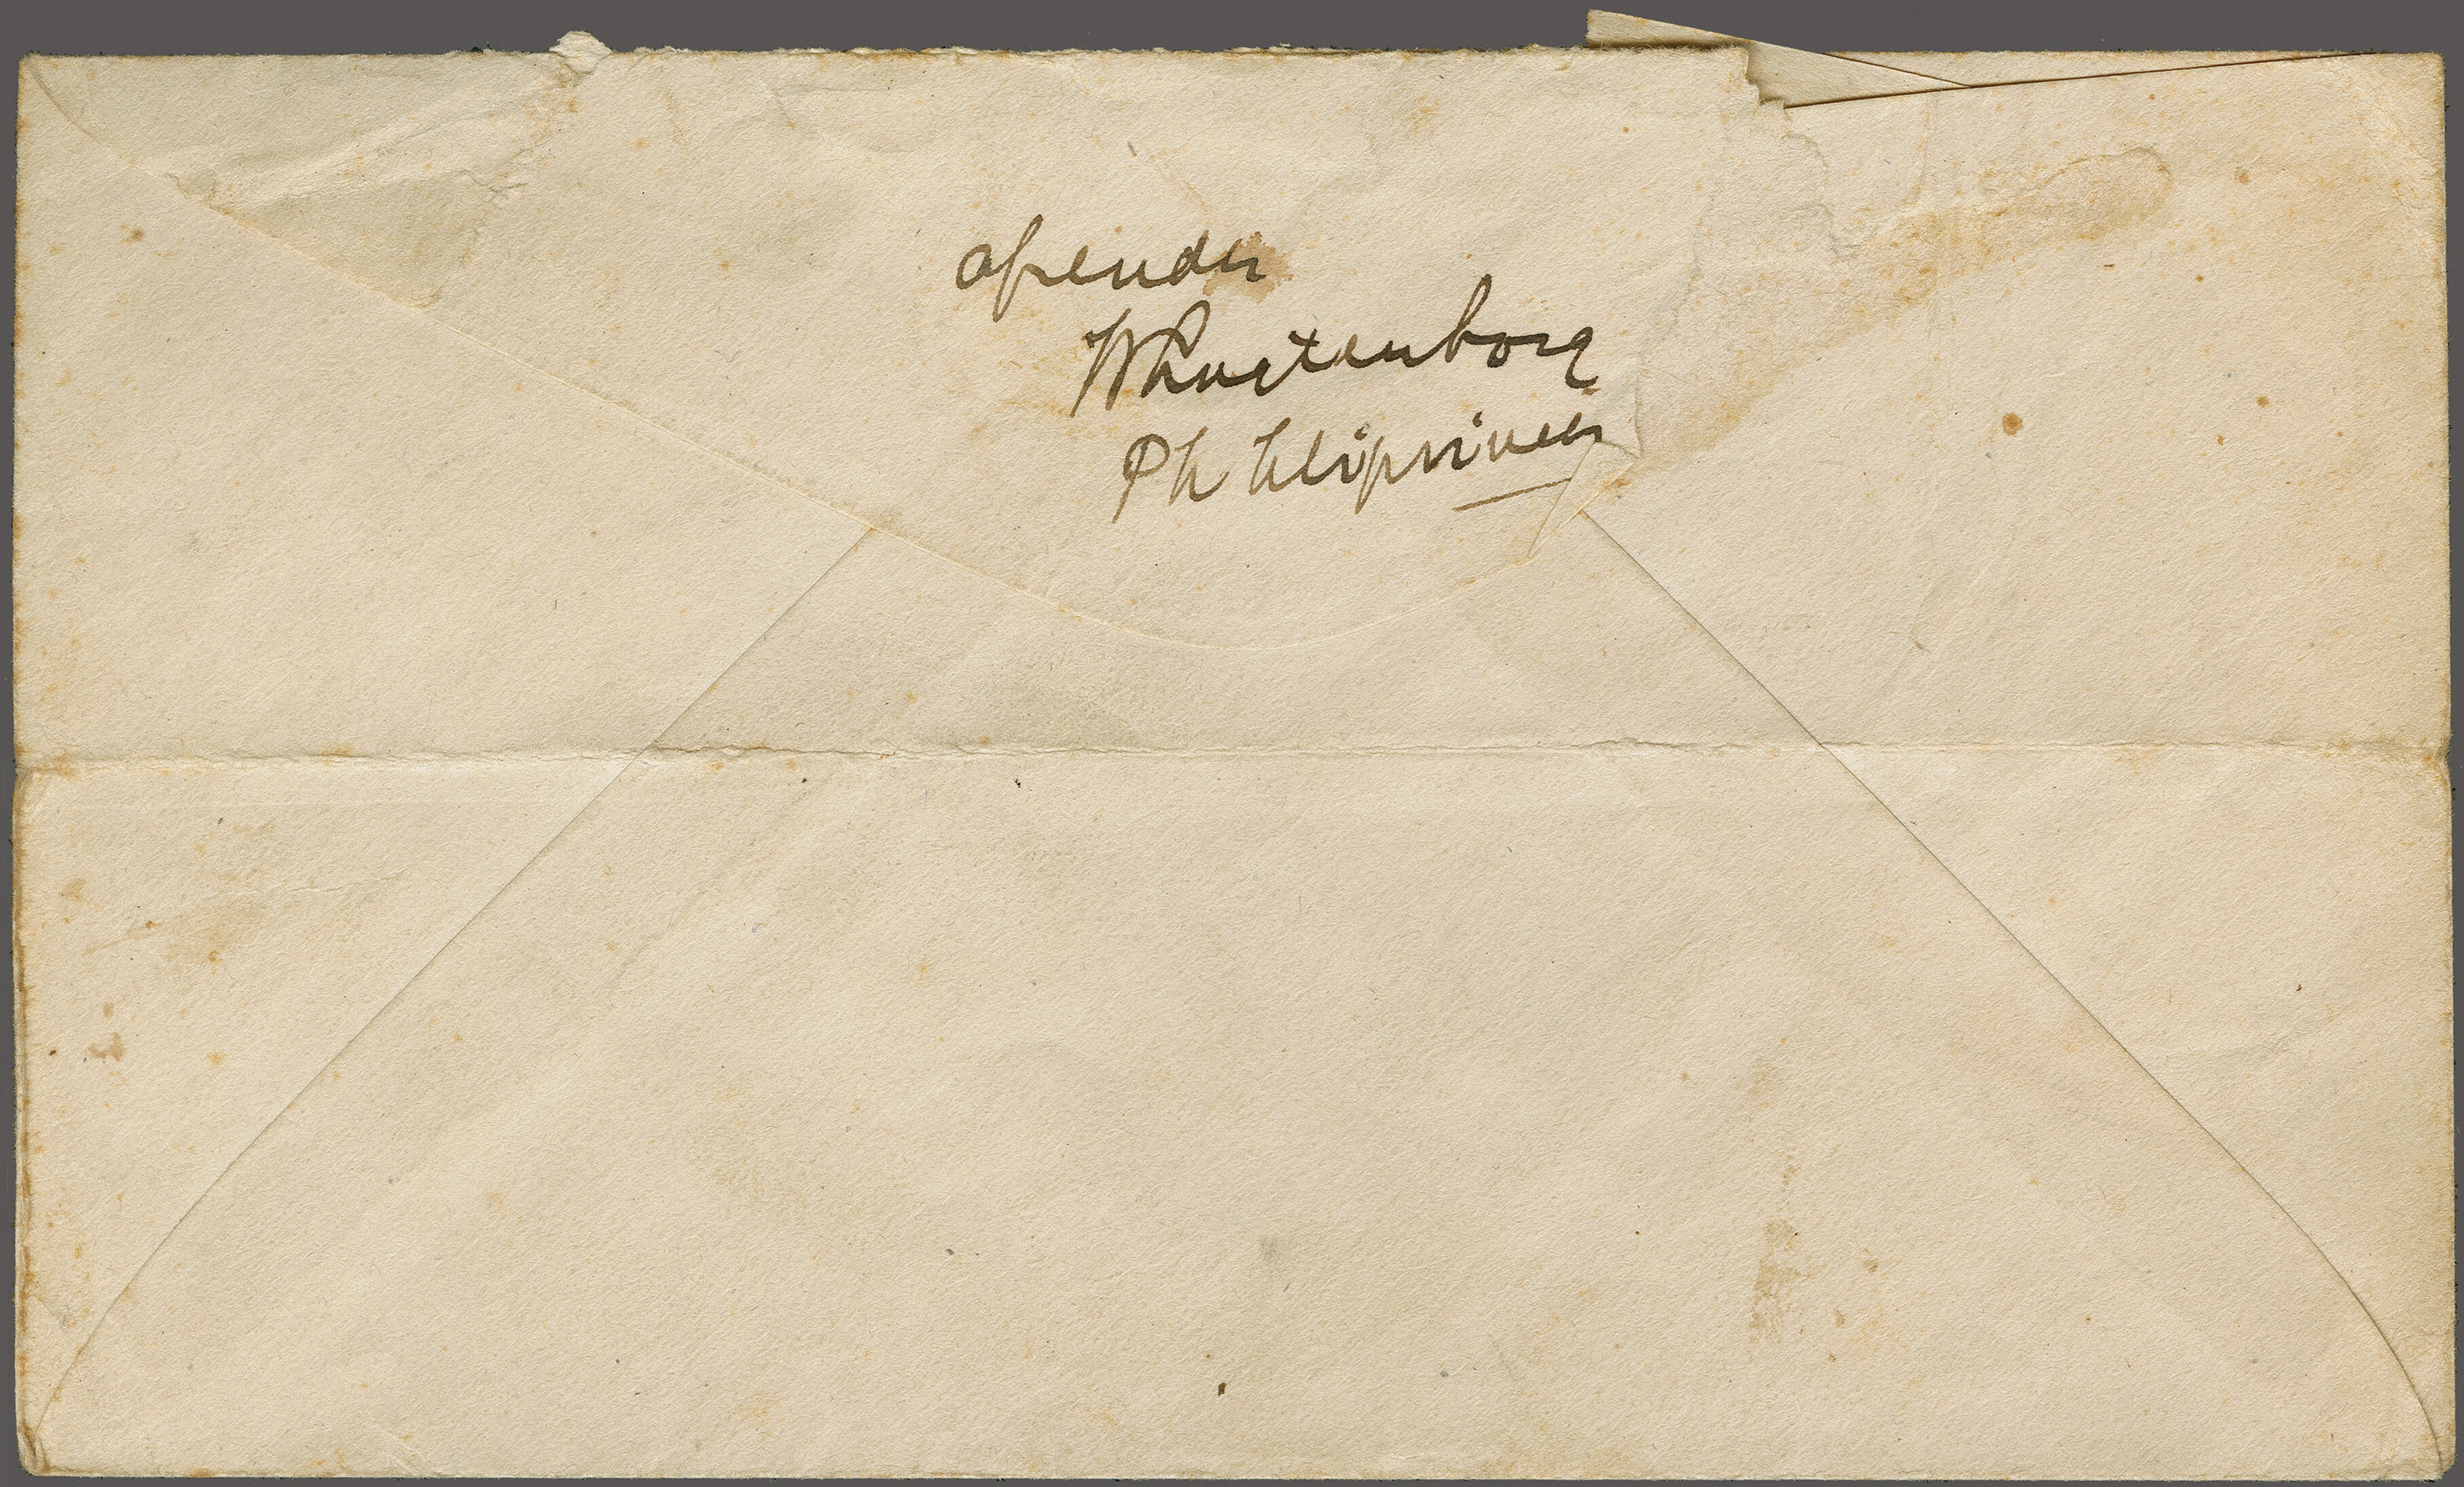 afender
WRustenborg
Phhlippinen